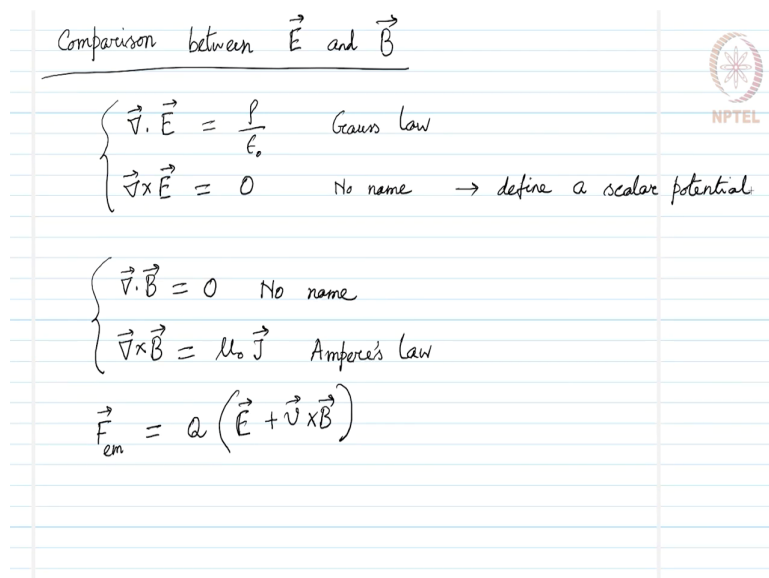 Comparison between \vec{E} and \vec{B}
NPTEL
\vec{∇}. \vec{E} = ρ/ε₀ Gauss law
\vec{∇}×\vec{E} = 0 No name → define a scalar potential
\vec{∇}.\vec{B} = 0 No name
\vec{∇}×\vec{B} = μ₀ \vec{J} Ampere's law
\vec{F}_{em} = Q (\vec{E} + \vec{v}×\vec{B})